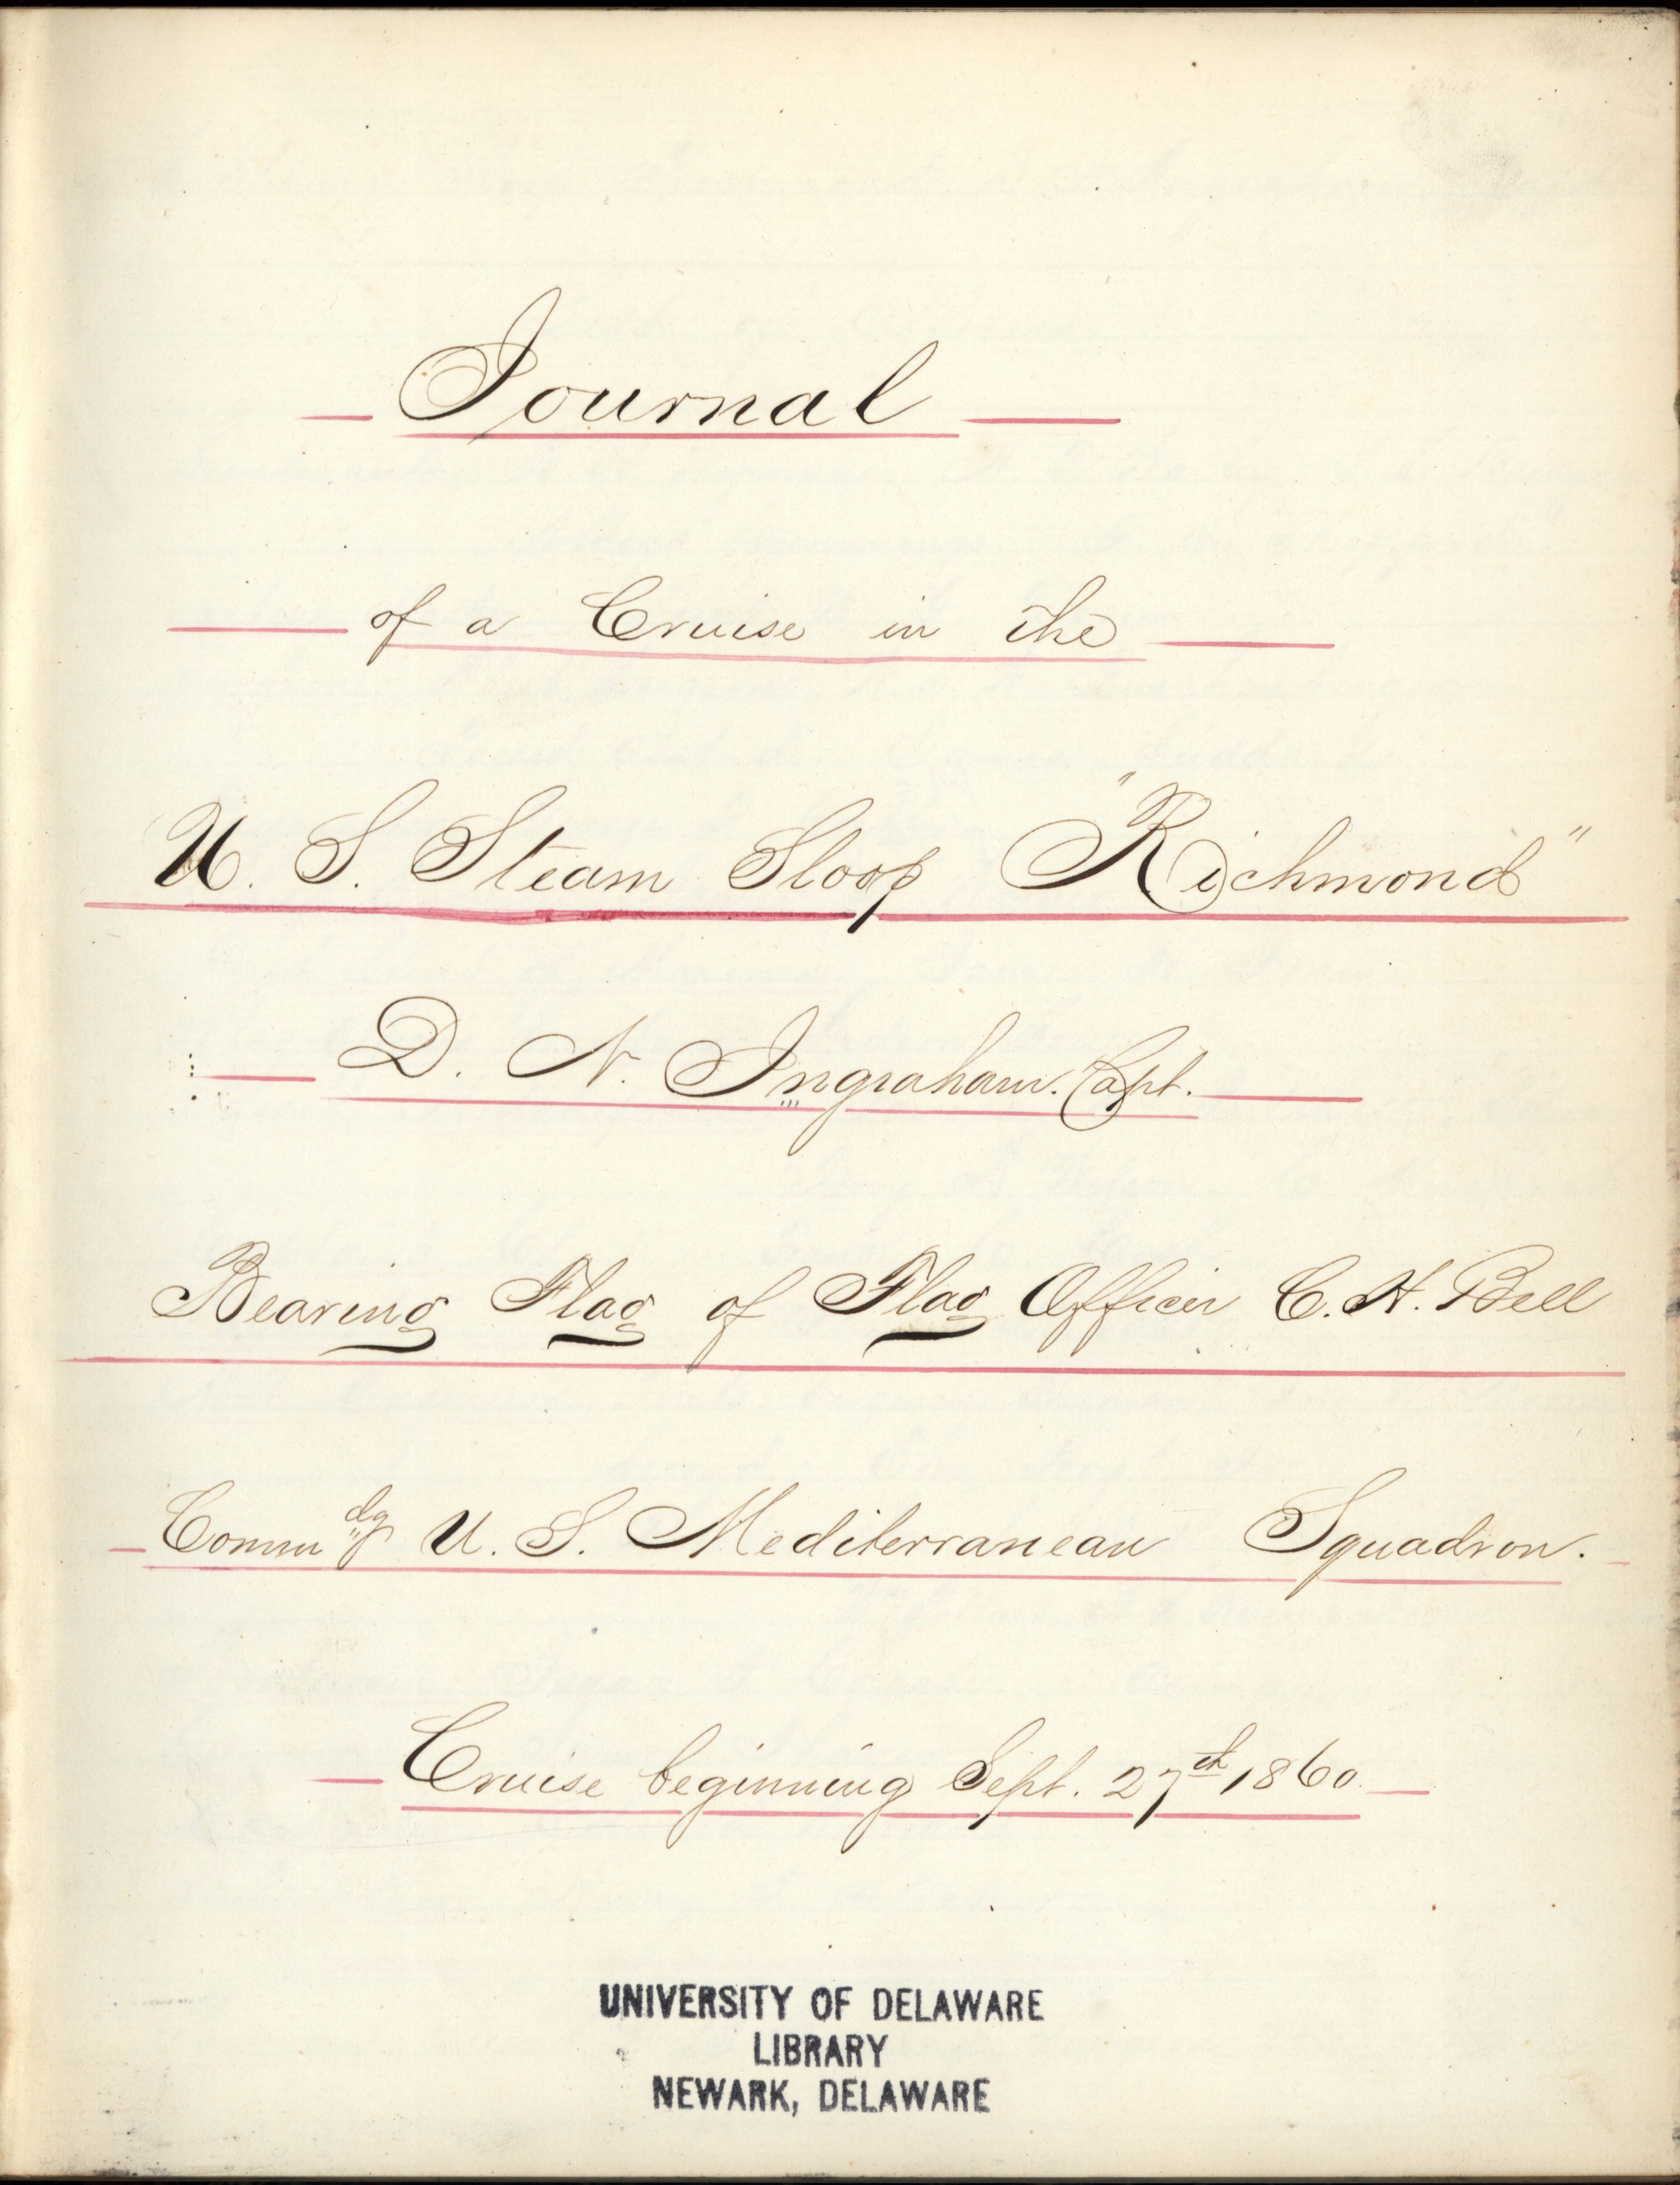 Journal
of a Cruise in the
U. S. Steam Sloop "Richmond"
D. N. Ingraham. Capt.
Bearing Flag of Flag Officer C. H. Bell
Comm"dg U. S. Mediterranean Squadron.
Cruise beginning Sept. 27th 1860.
UNIVERSITY OF DELAWARE
LIBRARY
NEWARK, DELAWARE